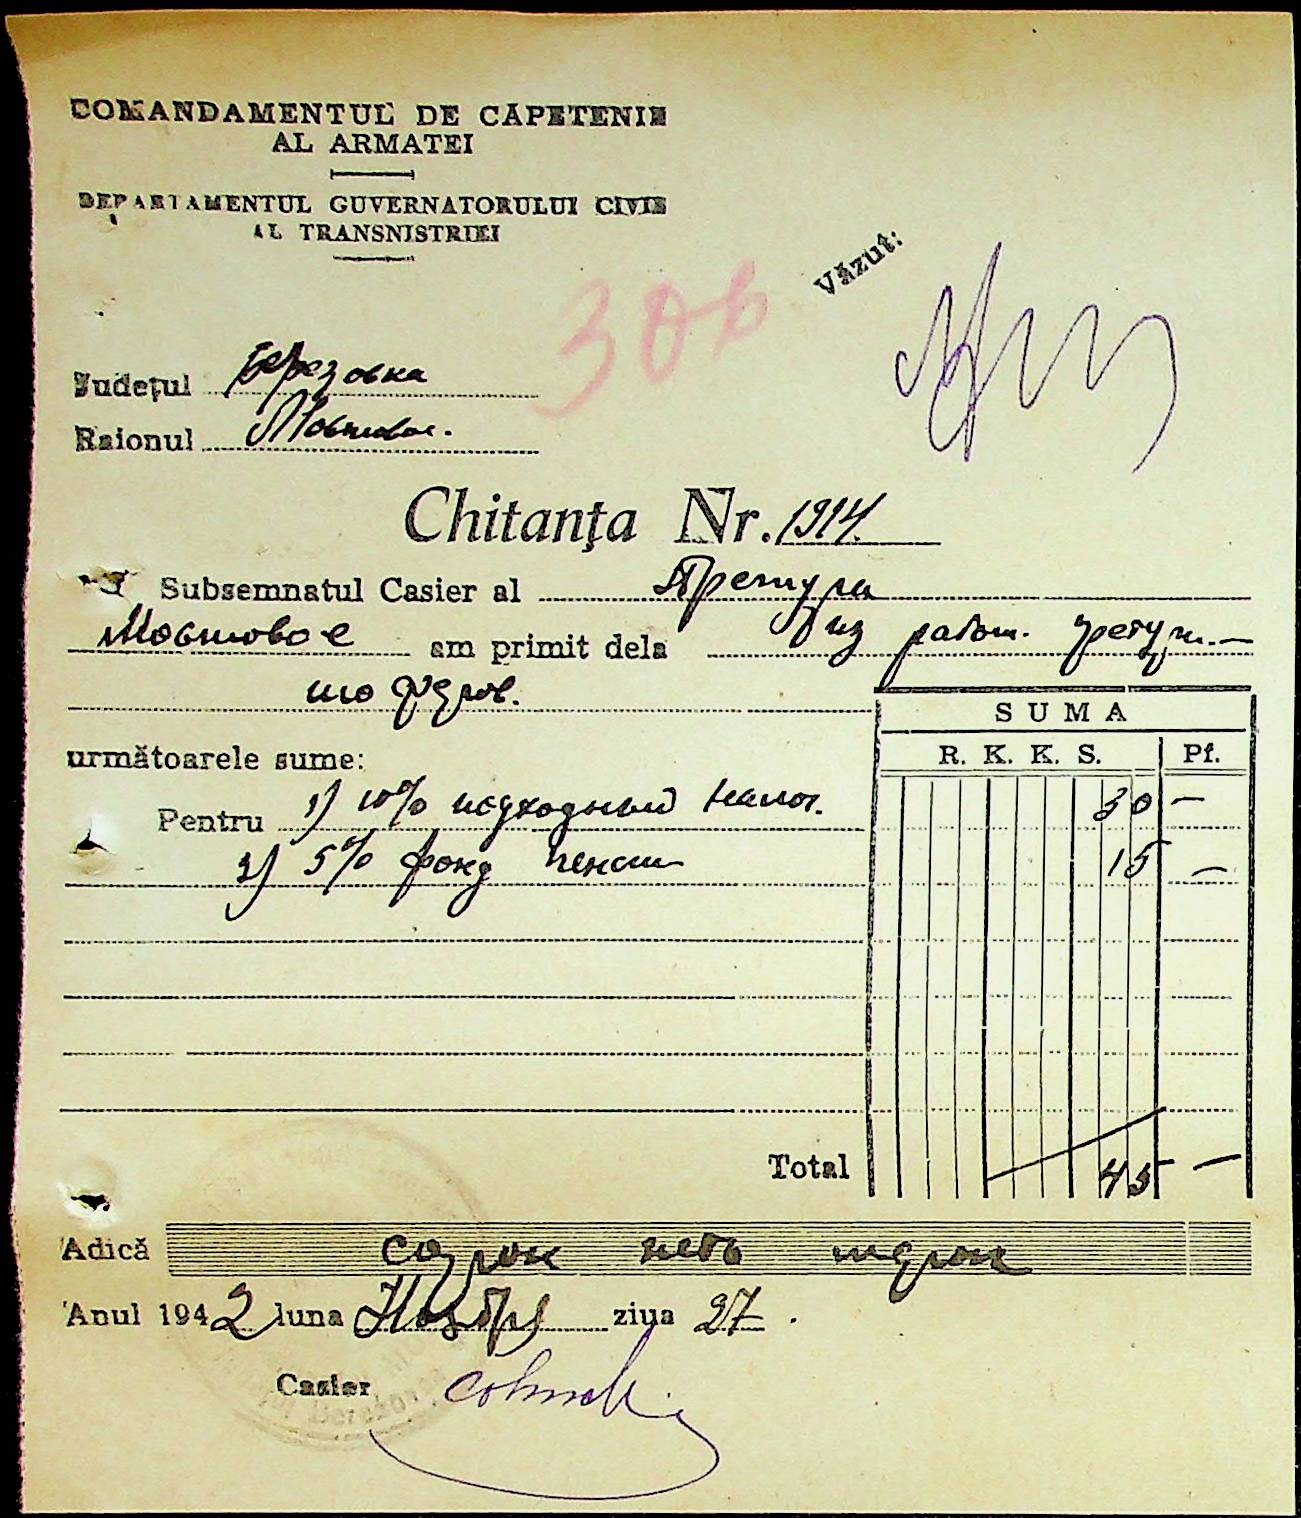 COMANDAMENTUL DE CAPETENIE
AL ARMATEI
DEPARTAMENTUL GUVERNATORULUI CIVIL
AL TRANSNISTRIEI
Văzut:
306
Județul Березовка
Raionul Мостовое.
Chitanţa Nr. 1914.
Subsemnatul Casier al Претура
Мостовое am primit dela из
următoarele sume:
SUMA
R. K. K. S. Pf.
Pentru 1) 10% налог. 30 —
2) 5% фонд пенсии 15 —
Total 45 —
Adică сорок
Anul 1942 luna Ноября ziua 27.
Casier